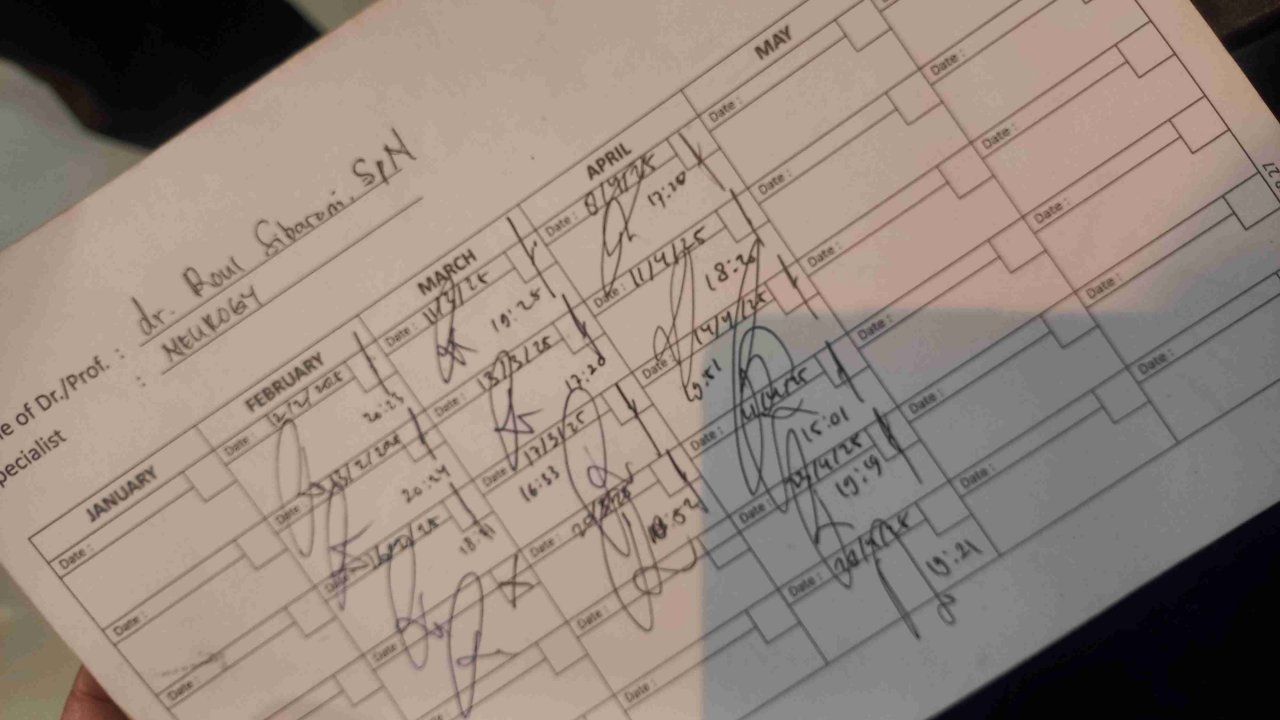 me of Dr./Prof. : dr. Roul Sibarani. SpN
pecialist : NEUROLOGY
JANUARY
Date :
Date :
Date :
FEBRUARY
Date : 12/2/2025
20:23
Date : 13/2/202
20:24
18:41
Date :
Date :
MARCH
Date : 11/3/25
19:25
Date : 13/3/25
17:20
Date : 17/3/25
16:33
Date : 20/3/25
18:52
Date :
Date :
APRIL
Date : 8/4/25
17:20
Date : 11/4/25
18:20
Date : 14/4/25
19:51
Date :
15:01
Date : 23/4/25
19:19
Date :
19:21
MAY
Date :
Date :
Date :
Date :
Date :
Date :
Date :
Date :
Date :
Date :
Date :
27